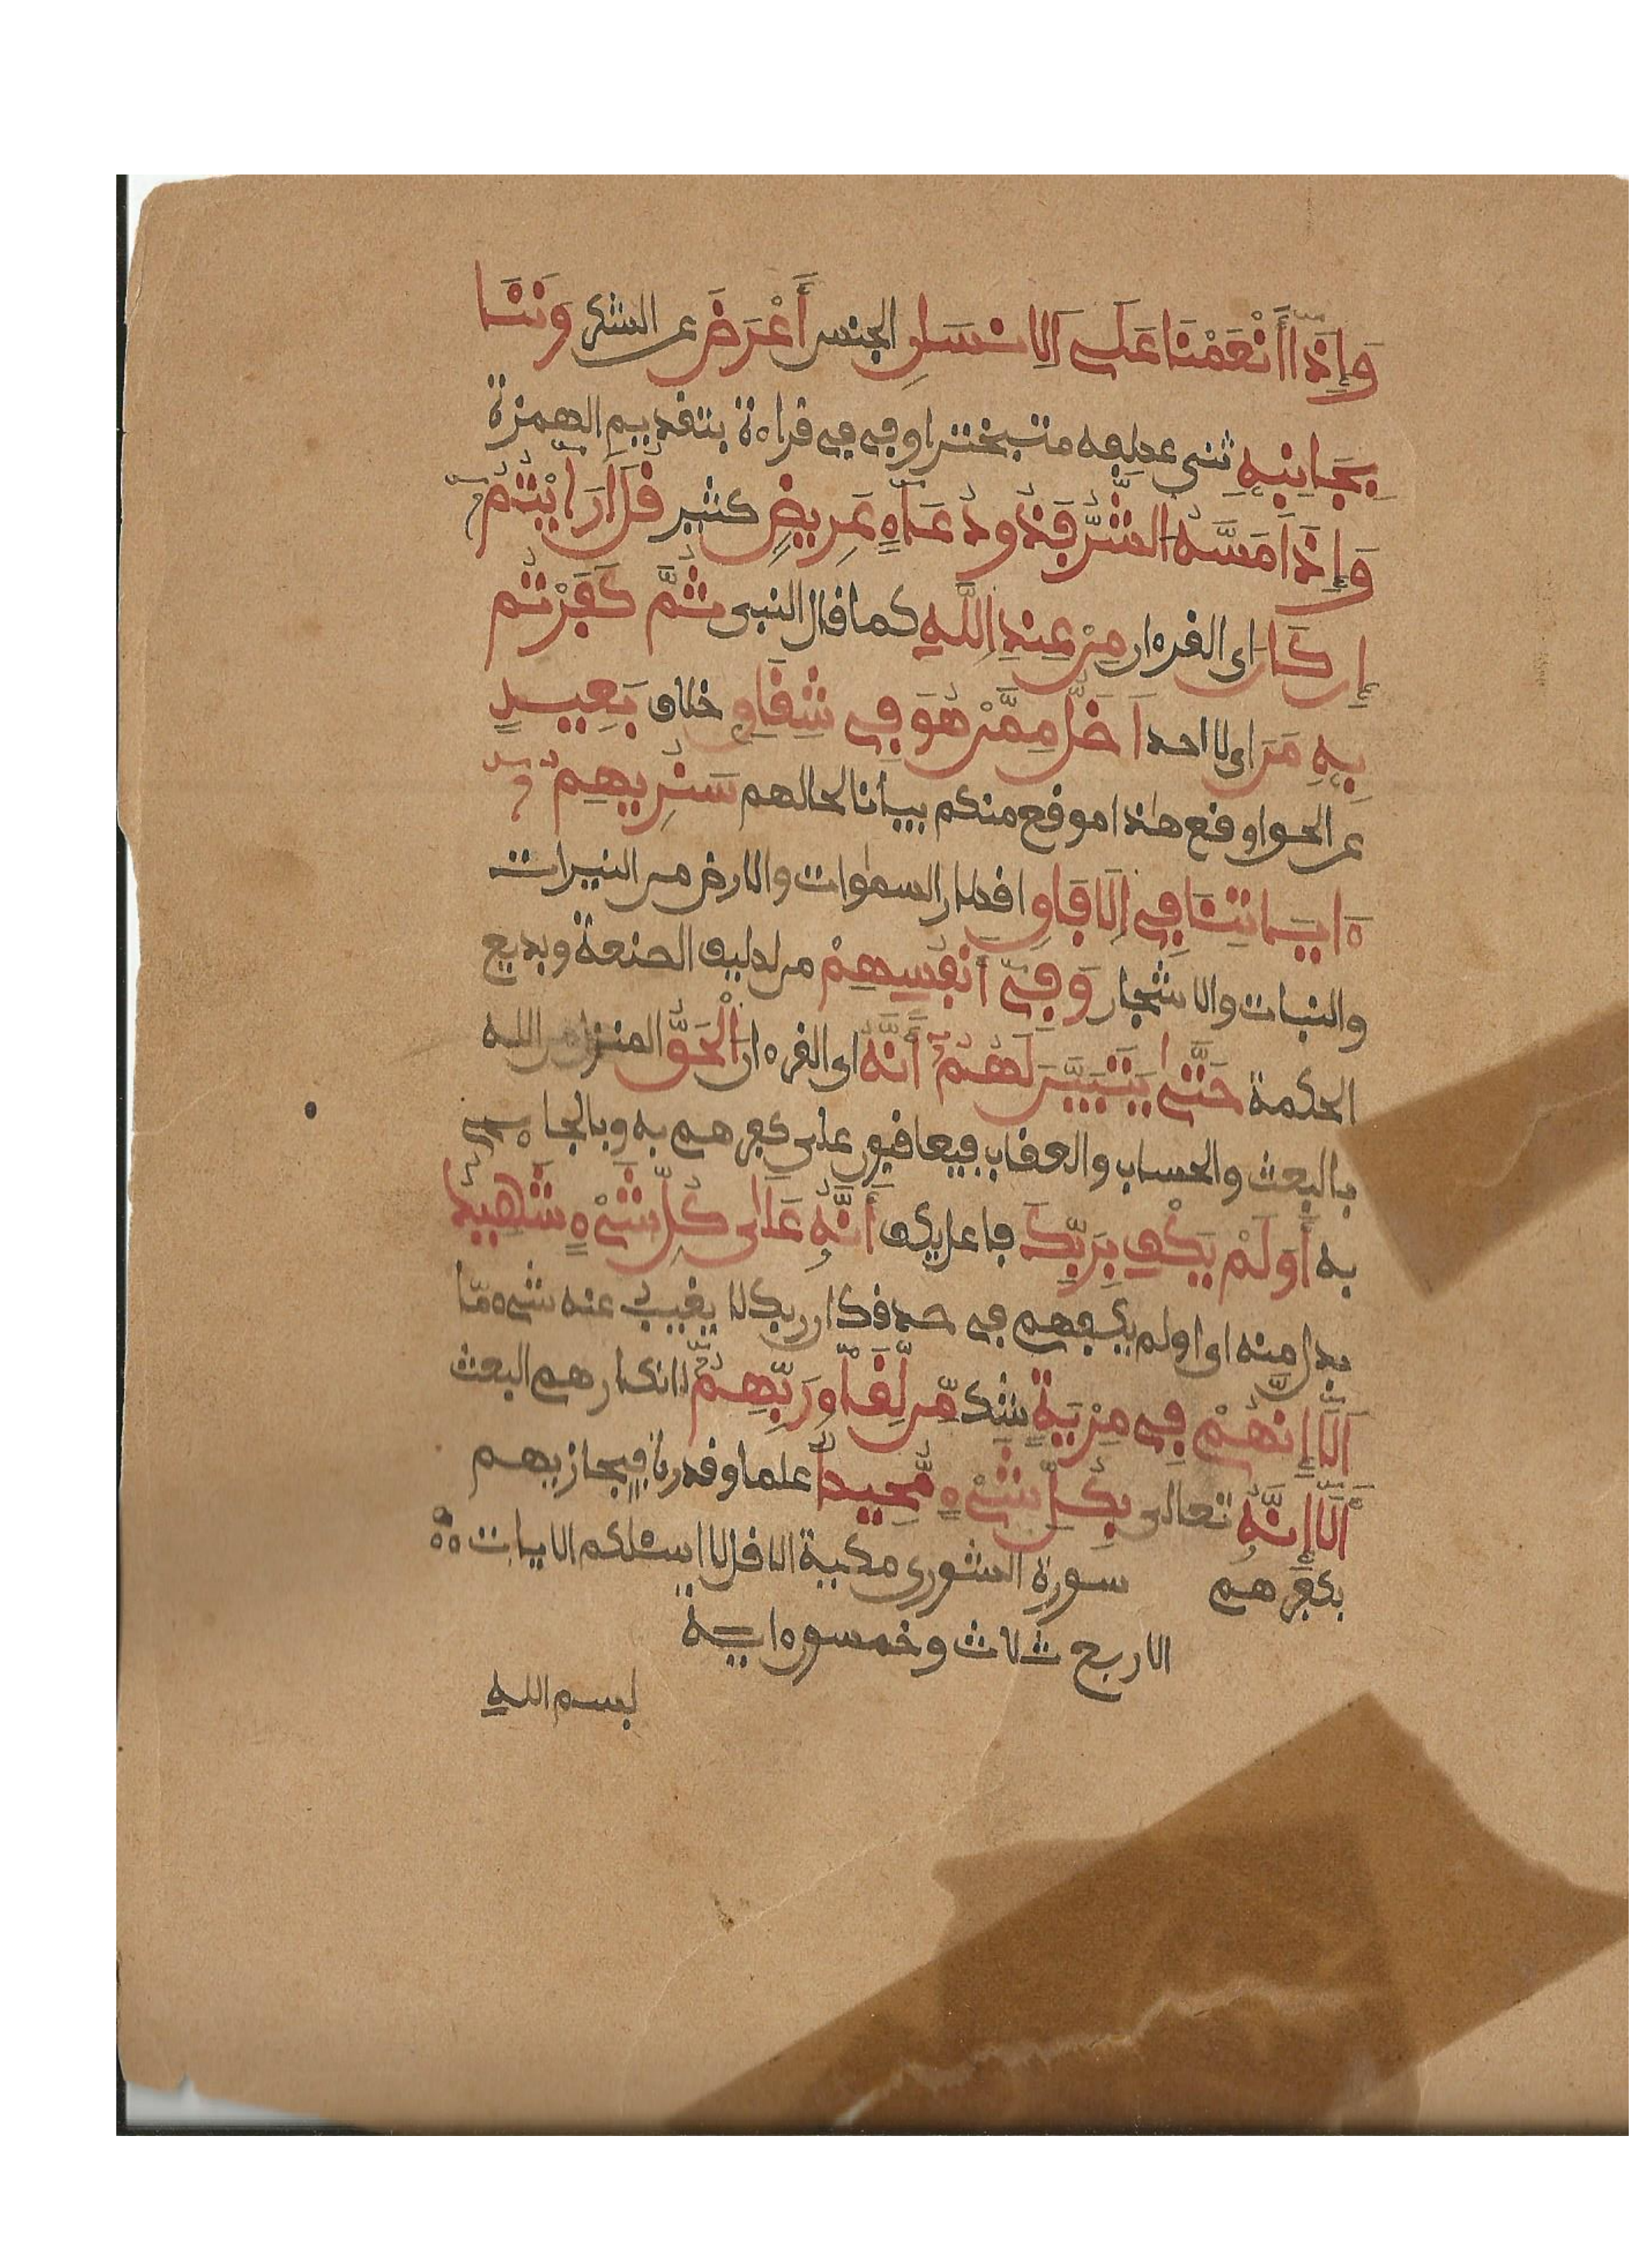 وَإِذَا أَنْعَمْنَا عَلَى اَلِانسَانِ الجنس أَعْرَضَ عن الشكر وَنَـَٔا
بِجَانِبِهِ ثنى عطفه متبخترا وفي في قراءة بتقديم الهمزة
وَإِذَا مَسَّهُ الشَّرُّ فَذُو دُعَآءٍ عَرِيضٍ كثير قُلَ اَرَٰيْتُمُ
إِن كَانَ اى القرءان مِنْ عِندِ اِللَّهِ كما قال النبى ثُمَّ كَفَرْتُم
بِهِ مَنَ اى لا احد اَضَلُّ مِمَّنْ هُوَ فِي شِقَاقٍ خلاف بَعِيدٍ
عن الحق اوقع هذا موقع منكم بيانا لحالهم سَنُرِيهِمُ
ءَايَاتِنَا فِي اِلَافَاقِ اقطار السموات والارض من النيرات
والنبات والاشجار وَفِي أَنفُسِهِمْ من لطيف الصنعة وبديع
الحكمة حَتَّىٰ يَتَبَيَّنَ لَهُمُ أَنَّهُ اى القرءان اَلْحَقُّ المنزل من الله
بالبعث والحساب والعقاب فيعاقبون على كفرهم به وبالجاءى
به أَوَلَمْ يَكْفِ بِرَبِّكَ فاعل يكف أَنَّهُ عَلَىٰ كُلِّ شَيْءٍ شَهِيدٌ
بدل منه اى اولم يكفهم في صدقك ان ربك لا يغيب عنه شيء ما
أَلَا إِنَّهُمْ فِي مِرْيَةٍ شك مِّن لِّقَآءِ رَبِّهِمُ لانكارهم البعث
أَلَا إِنَّهُ تعالى بِكُلِّ شَيْءٍ مُّحِيطٌ علما وقدرة فيجازيهم
بكفرهم سورة الشورى مكية الا قل لا اسئلكم الايات
الاربع ثلاث وخمسون ءاية
بسم الله